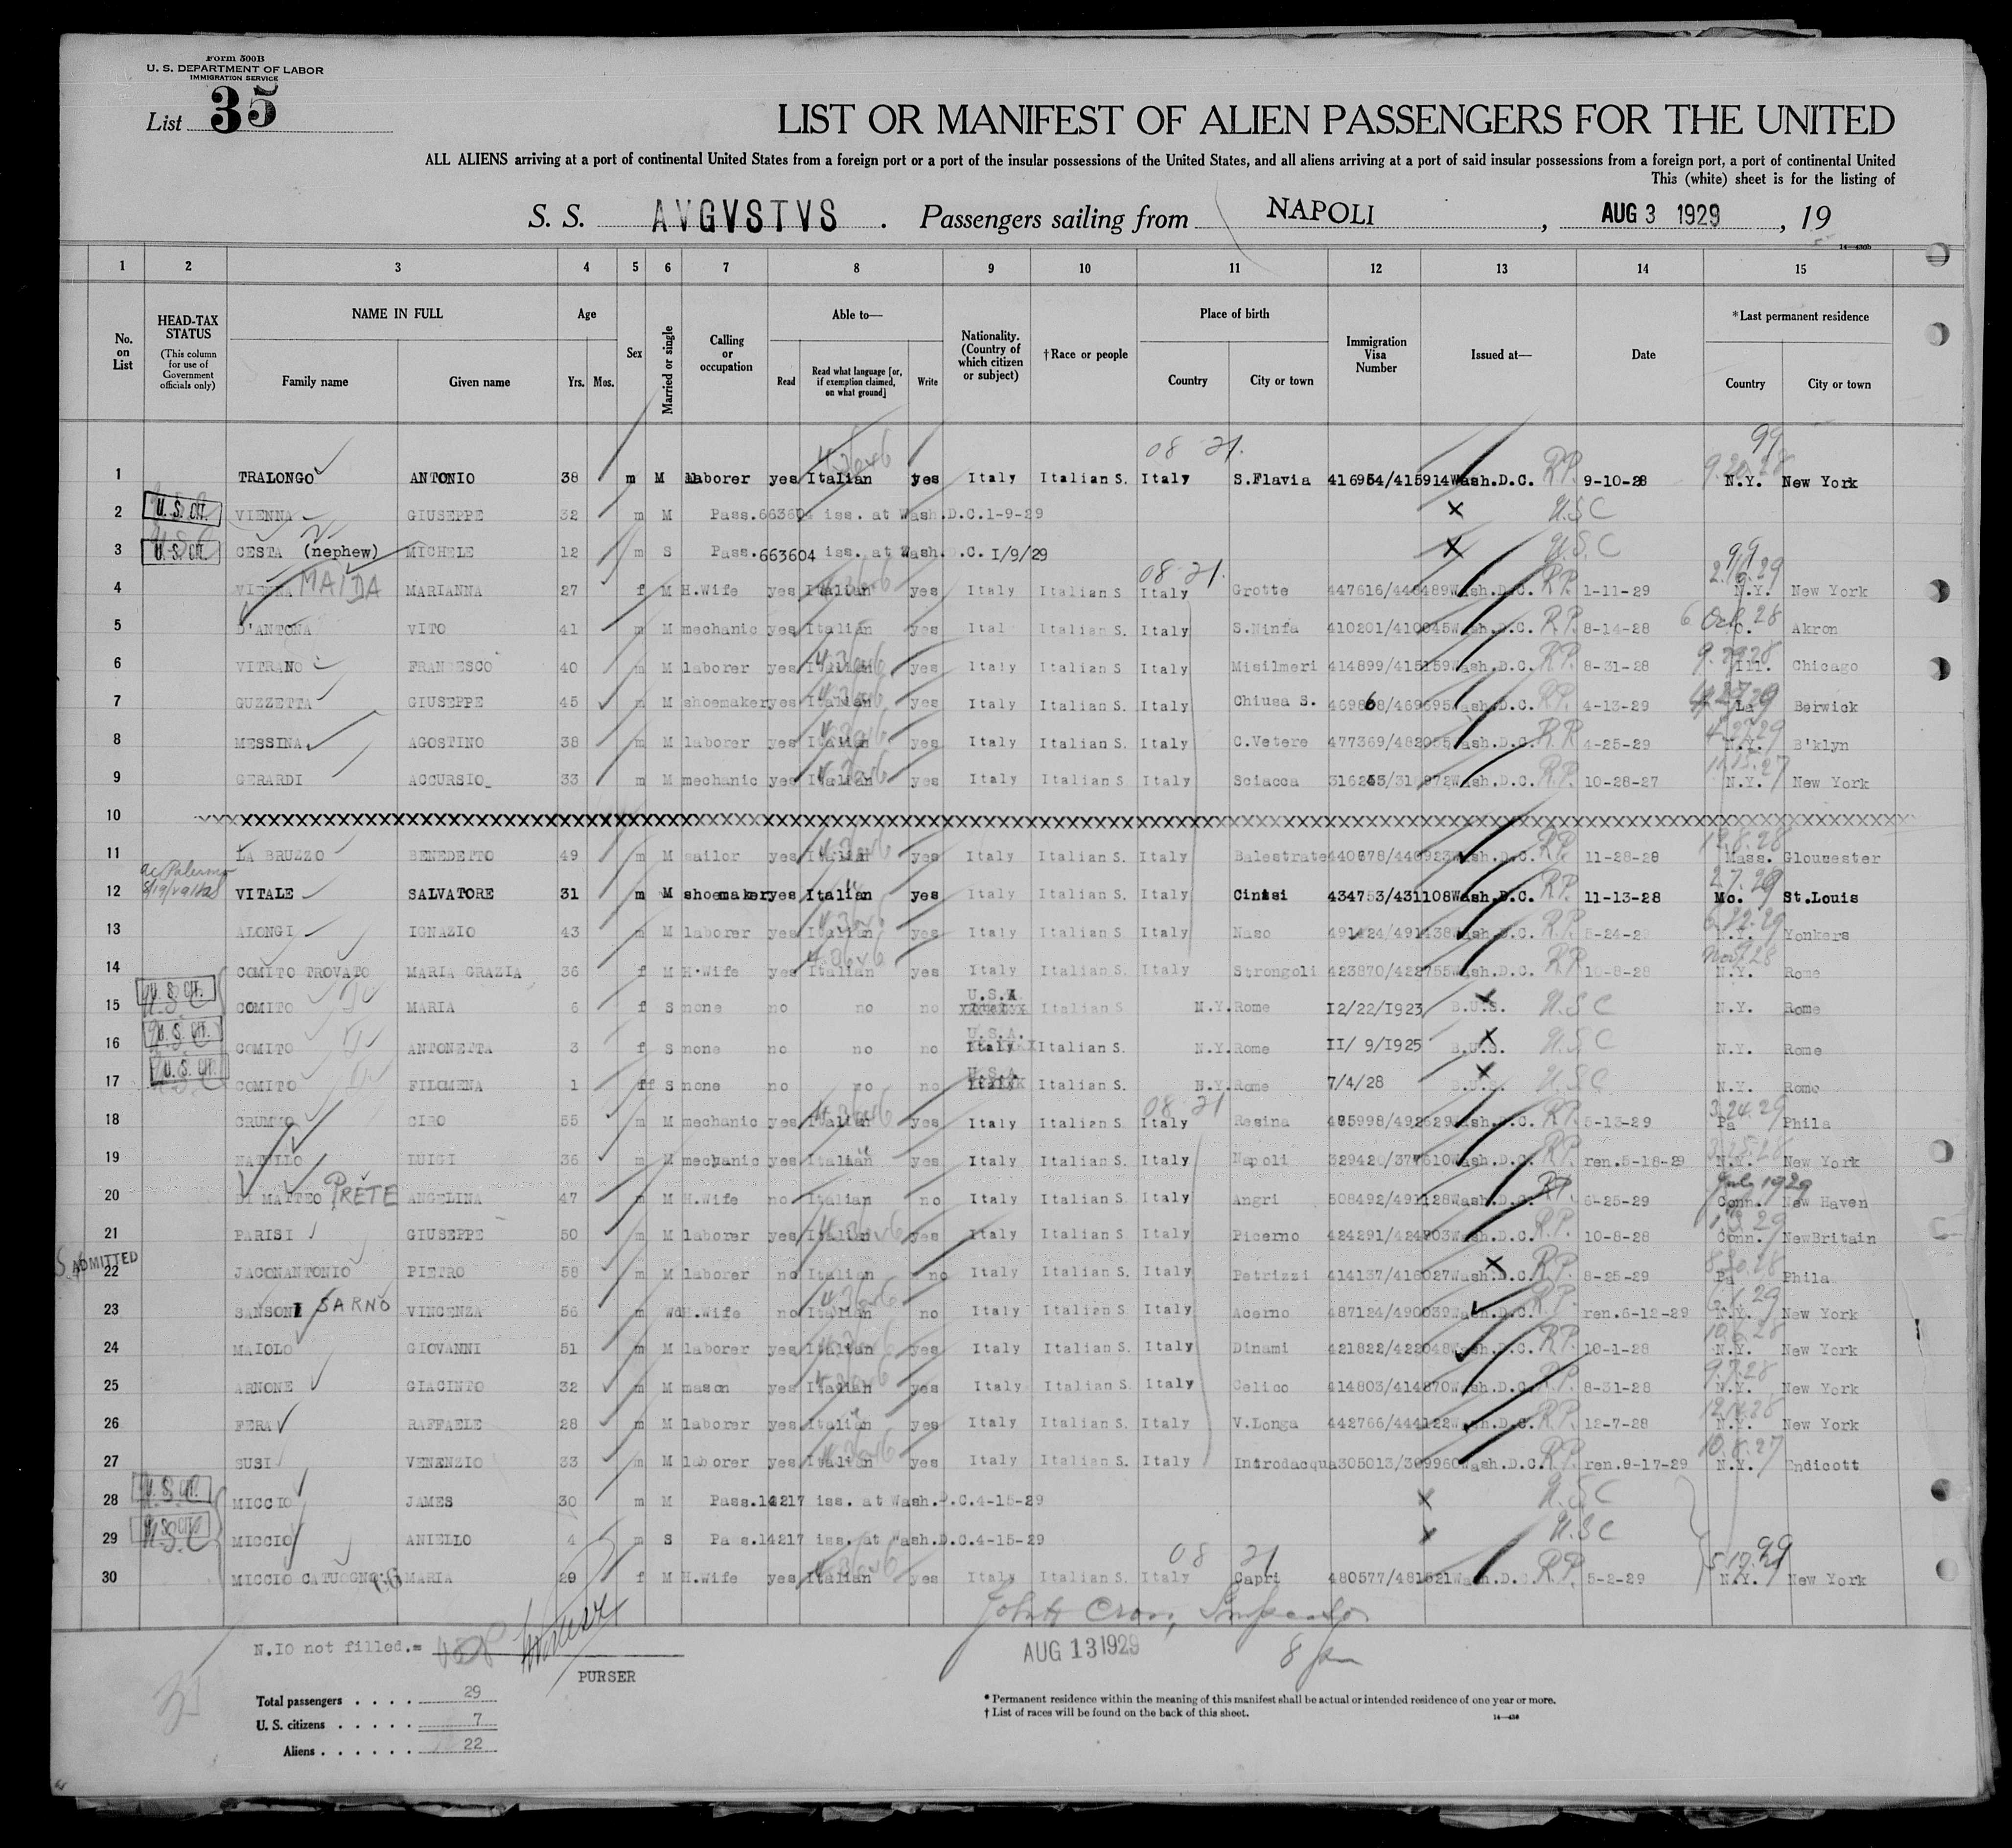 Form 500B
U. S. DEPARTMENT OF LABOR
IMMIGRATION SERVICE
List 35
LIST OR MANIFEST OF ALIEN PASSENGERS FOR THE UNITED
ALL ALIENS arriving at a port of continental United States from a foreign port or a port of the insular possessions of the United States, and all aliens arriving at a port of said insular possessions from a foreign port, a port of continental United
This (white) sheet is for the listing of
S. S. AVGVSTVS. Passengers sailing from NAPOLI, AUG 3 1929, 19
1 2 3 4 5 6 7 8 9 10 11 12 13 14 15
No. on List
HEAD-TAX STATUS (This column for use of Government officials only)
NAME IN FULL
Family name Given name
Age
Yrs. Mos.
Sex
Married or single
Calling or occupation
Able to—
Read Read what language [or, if exemption claimed, on what ground] Write
Nationality. (Country of which citizen or subject)
†Race or people
Place of birth
Country City or town
Immigration Visa Number
Issued at—
Date
*Last permanent residence
Country City or town
08 21. 99
1 TRALONGO ANTONIO 38 m M laborer yes Italian yes Italy Italian S. Italy S.Flavia 416954/415914 Wash.D.C. R.P. 9-10-28 N.Y. New York
2 U.S. CIT. VIENNA GIUSEPPE 32 m M Pass.663604 iss. at Wash.D.C.1-9-29 X U.S.C
3 U.S. CIT. CESTA (nephew) MICHELE 12 m S Pass.663604 iss. at Wash.D.C. I/9/29 X U.S.C
08 21. 99
4 VIENNA MAIDA MARIANNA 27 f M H.Wife yes Italian yes Italy Italian S Italy Grotte 447616/ Wash.D.C. R.P. 1-11-29 N.Y. New York
5 D'ANTONA VITO 41 m M mechanic yes Italian yes Ital Italian S. Italy S.Ninfa 410201/410045 Wash.D.C. R.P. 8-14-28 O. Akron
6 VITRANO FRANCESCO 40 m M laborer yes Italian yes Italy Italian S Italy Misilmeri 414899/415159 Wash.D.C. R.P. 8-31-28 Ill. Chicago
7 GUZZETTA GIUSEPPE 45 m M shoemaker yes Italian yes Italy Italian S. Italy Chiusa S. 469868/469695 Wash.D.C. R.P. 4-13-29 La Berwick
8 MESSINA AGOSTINO 38 m M laborer yes Italian yes Italy Italian S. Italy C.Vetere 477369/482055 Wash.D.C. R.P. 4-25-29 N.Y. B'klyn
9 GERARDI ACCURSIO 33 m M mechanic yes Italian yes Italy Italian S Italy Sciacca Wash.D.C. R.P. 10-28-27 N.Y. New York
10
11 LA BRUZZO BENEDETTO 49 m M sailor yes Italian yes Italy Italian S. Italy Balestrate 440678/440923 Wash.D.C. R.P. 11-28-28 Mass. Gloucester
12 VITALE SALVATORE 31 m M shoemaker yes Italian yes Italy Italian S. Italy Cinisi 434753/431108 Wash.D.C. R.P. 11-13-28 Mo. St.Louis
13 ALONGI IGNAZIO 43 m M laborer yes Italian yes Italy Italian S. Italy Naso Wash.D.C. R.P. 5-24-29 N.Y. Yonkers
14 COMITO TROVATO MARIA GRAZIA 36 f M H.Wife yes Italian yes Italy Italian S. Italy Strongoli 423870/422755 Wash.D.C. R.P. 10-8-28 N.Y. Rome
15 U.S. CIT. COMITO MARIA 6 f S none no no no U.S.A Italian S N.Y. Rome I2/22/1923 B.U.S. U.S.C N.Y. Rome
16 U.S. CIT. COMITO ANTONETTA 3 f S none no no no U.S.A. Italy Italian S. N.Y. Rome II/ 9/1925 B.U.S. U.S.C N.Y. Rome
17 U.S. CIT. COMITO FILOMENA 1 f S none no no no U.S.A. Italy Italian S. N.Y. Rome 7/4/28 B.U.S. U.S.C N.Y. Rome
08 21
18 CRUMMO CIRO 55 m M mechanic yes Italian yes Italy Italian S Italy Resina 485998/492629 Wash.D.C. R.P. 5-13-29 Pa Phila
19 LUIGI 36 m M mechanic yes Italian yes Italy Italian S. Italy Napoli Wash.D.C. R.P. ren.5-18-29 N.Y. New York
20 DI MATTEO PRETE ANGELINA 47 m M H.Wife no Italian no Italy Italian S. Italy Angri 508492/491128 Wash.D.C. R.P. 6-25-29 July 1929 Conn. New Haven
21 PARISI GIUSEPPE 50 m M laborer yes Italian yes Italy Italian S. Italy Picerno 424291/424903 Wash.D.C. R.P. 10-8-28 Conn. NewBritain
ADMITTED
22 JACONANTONIO PIETRO 58 m M laborer no Italian no Italy Italian S. Italy Petrizzi 414137/418027 Wash.D.C. R.P. 8-25-29 Pa Phila
23 SANSONE SARNO VINCENZA 56 m Wd H.Wife no Italian no Italy Italian S. Italy Acerno 487124/490039 Wash.D.C. R.P. ren.6-12-29 N.Y. New York
24 MAIOLO GIOVANNI 51 m M laborer yes Italian yes Italy Italian S. Italy Dinami 421822/422048 Wash.D.C. R.P. 10-1-28 N.Y. New York
25 ARNONE GIACINTO 32 m M mason yes Italian yes Italy Italian S. Italy Celico 414803/414870 Wash.D.C. R.P. 8-31-28 N.Y. New York
26 FERA RAFFAELE 28 m M laborer yes Italian yes Italy Italian S. Italy V.Longa 442766/444122 Wash.D.C. R.P. 12-7-28 N.Y. New York
27 SUSI VENENZIO 33 m M laborer yes Italian yes Italy Italian S. Italy Introdacqua 305013/309960 Wash.D.C. R.P. ren.9-17-29 N.Y. Endicott
28 U.S. CIT. MICCIO JAMES 30 m M Pass.14217 iss. at Wash.D.C.4-15-29 X U.S.C
29 U.S. CIT. MICCIO ANIELLO 4 m S Pass.14217 iss. at Wash.D.C.4-15-29 X U.S.C
08 21 99
30 MICCIO CATUOGNO MARIA 29 f M H.Wife yes Italian yes Italy Italian S. Italy Capri 480577/481521 Wash.D.C. R.P. 5-2-29 N.Y. New York
N.IO not filled.=
AUG 13 1929
8 pm
PURSER
Total passengers . . . . 29
U. S. citizens . . . . . 7
Aliens . . . . . . 22
* Permanent residence within the meaning of this manifest shall be actual or intended residence of one year or more.
† List of races will be found on the back of this sheet.